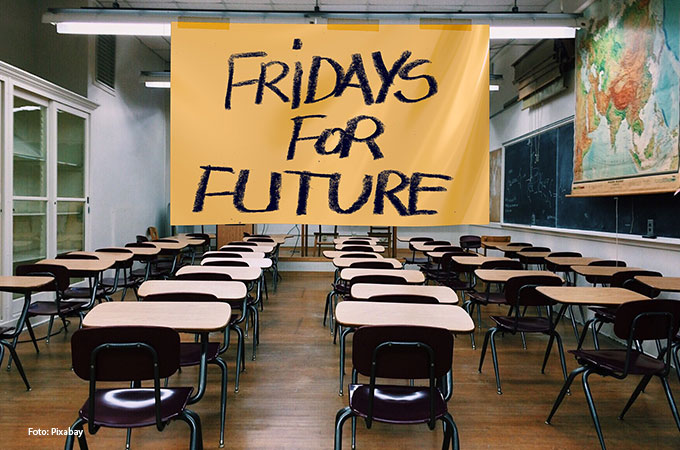 FRIDAYS
FOR
FUTURE
Foto: Pixabay